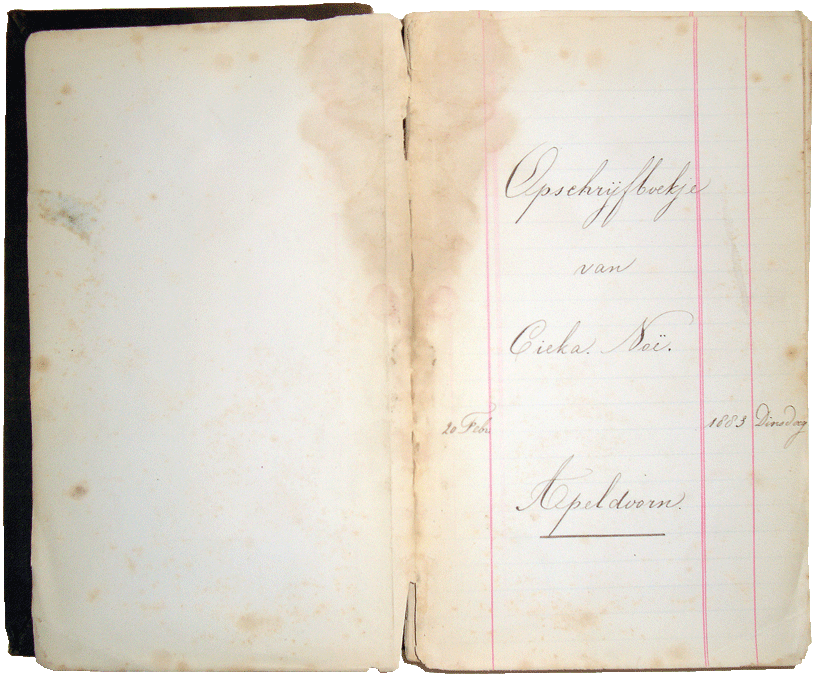 Opschrijfboekje
van
Cieka. Noë.
20 Febr 1883 Dinsdag
Apeldoorn.